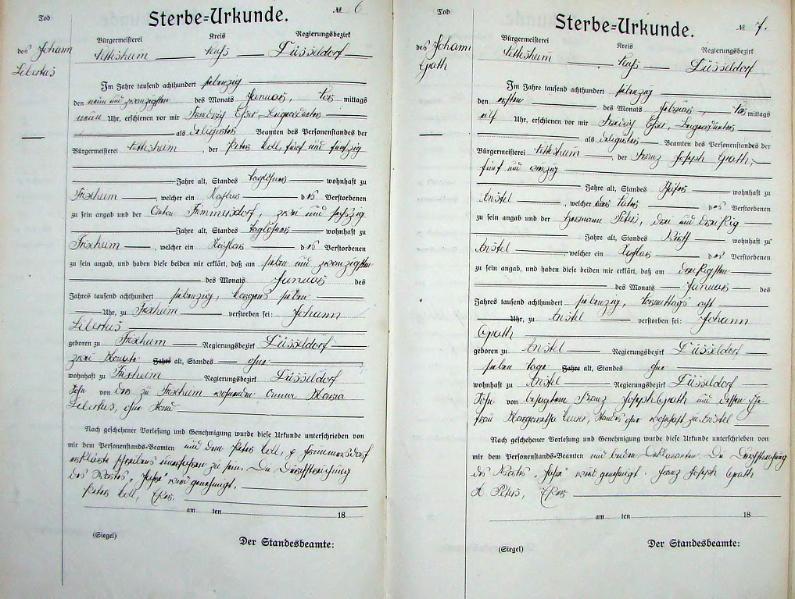 Tod
Sterbe=Urkunde.
№ 6
Bürgermeisterei Kreis Regierungsbezirk
des Johann
Nettesheim Neuß Düsseldorf
Libertus
Im Jahre tausend achthundert siebenzig
den neun und zwanzigsten des Monats Januar, mittags
neun Uhr, erschienen vor mir Esser,
als delegirter Beamten des Personenstandes der
Bürgermeisterei Nettesheim, der Peter Coll, fünf und fünfzig
Jahre alt, Standes Taglöhner wohnhaft zu
Frixheim, welcher ein des Verstorbenen
zu sein angab und der Simmersdorf, zwei und sechszig
Jahre alt, Standes Taglöhner wohnhaft zu
Frixheim, welcher ein des Verstorbenen
zu sein angab, und haben diese beiden mir erklärt, daß am sieben und zwanzigsten
des Monats Januar des
Jahres tausend achthundert siebenzig, Morgens sieben
Uhr, zu Frixheim verstorben sei: Johann
Libertus
geboren zu Frixheim Regierungsbezirk Düsseldorf
zwei Monate Jahre alt, Standes ohne
wohnhaft zu Frixheim Regierungsbezirk Düsseldorf
Sohn von der zu Frixheim wohnenden Anna Maria
Libertus, ohne Stand
Nach geschehener Vorlesung und Genehmigung wurde diese Urkunde unterschrieben von
mir dem Personenstands=Beamten und dem Peter Coll, Simmersdorf
erklärte Schreibens unerfahren zu sein. Die Durchstreichung
des Wortes „Jahre" wird genehmigt.
Peter Coll, Esser
am ten 18
(Siegel)
Der Standesbeamte:
Tod
Sterbe=Urkunde.
№ 7.
Bürgermeisterei Kreis Regierungsbezirk
des Johann
Nettesheim Neuß Düsseldorf
Im Jahre tausend achthundert siebenzig
den ersten des Monats Februar, mittags
elf Uhr, erschienen vor mir Esser,
als delegirter Beamten des Personenstandes der
Bürgermeisterei Nettesheim, der Franz Joseph
fünf und
Jahre alt, Standes wohnhaft zu
Anstel, welcher des Verstorbenen
zu sein angab und der Hermann Peters, drei und dreißig
Jahre alt, Standes wohnhaft zu
Anstel welcher ein des Verstorbenen
zu sein angab, und haben diese beiden mir erklärt, daß am dreißigsten
des Monats Januar des
Jahres tausend achthundert siebenzig, Vormittags acht
Uhr, zu Anstel verstorben sei: Johann
geboren zu Anstel Regierungsbezirk Düsseldorf
sieben Tage Jahre alt, Standes ohne
wohnhaft zu Anstel Regierungsbezirk Düsseldorf
Sohn von besagtem Franz Joseph und dessen Ehe-
frau Margaretha Standes ohne wohnhaft zu Anstel
Nach geschehener Vorlesung und Genehmigung wurde diese Urkunde unterschrieben von
mir dem Personenstands=Beamten und beiden Deklaranten. Die Durchstreichung
des Wortes „Jahre" wird genehmigt. Franz Joseph
H. Peters, Esser
am ten 18
(Siegel)
Der Standesbeamte: